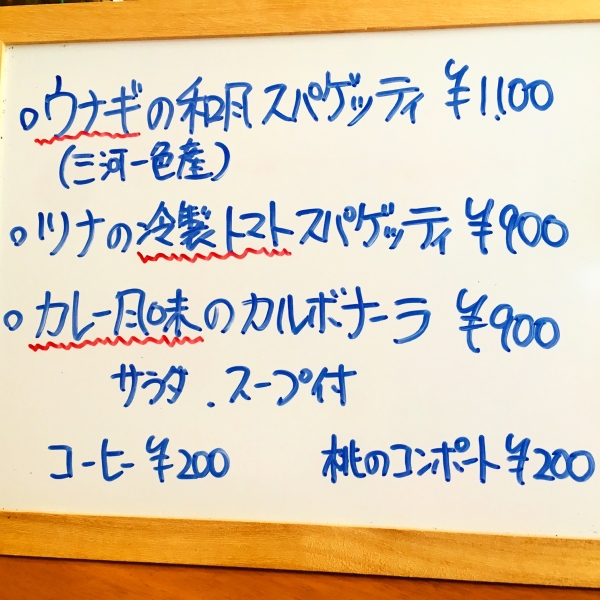 ○ウナギの和風スパゲッティ ¥1,100
(三河一色産)
○ツナの冷製トマトスパゲッティ ¥900
○カレー風味のカルボナーラ ¥900
サラダ.スープ付
コーヒー ¥200 桃のコンポート ¥200